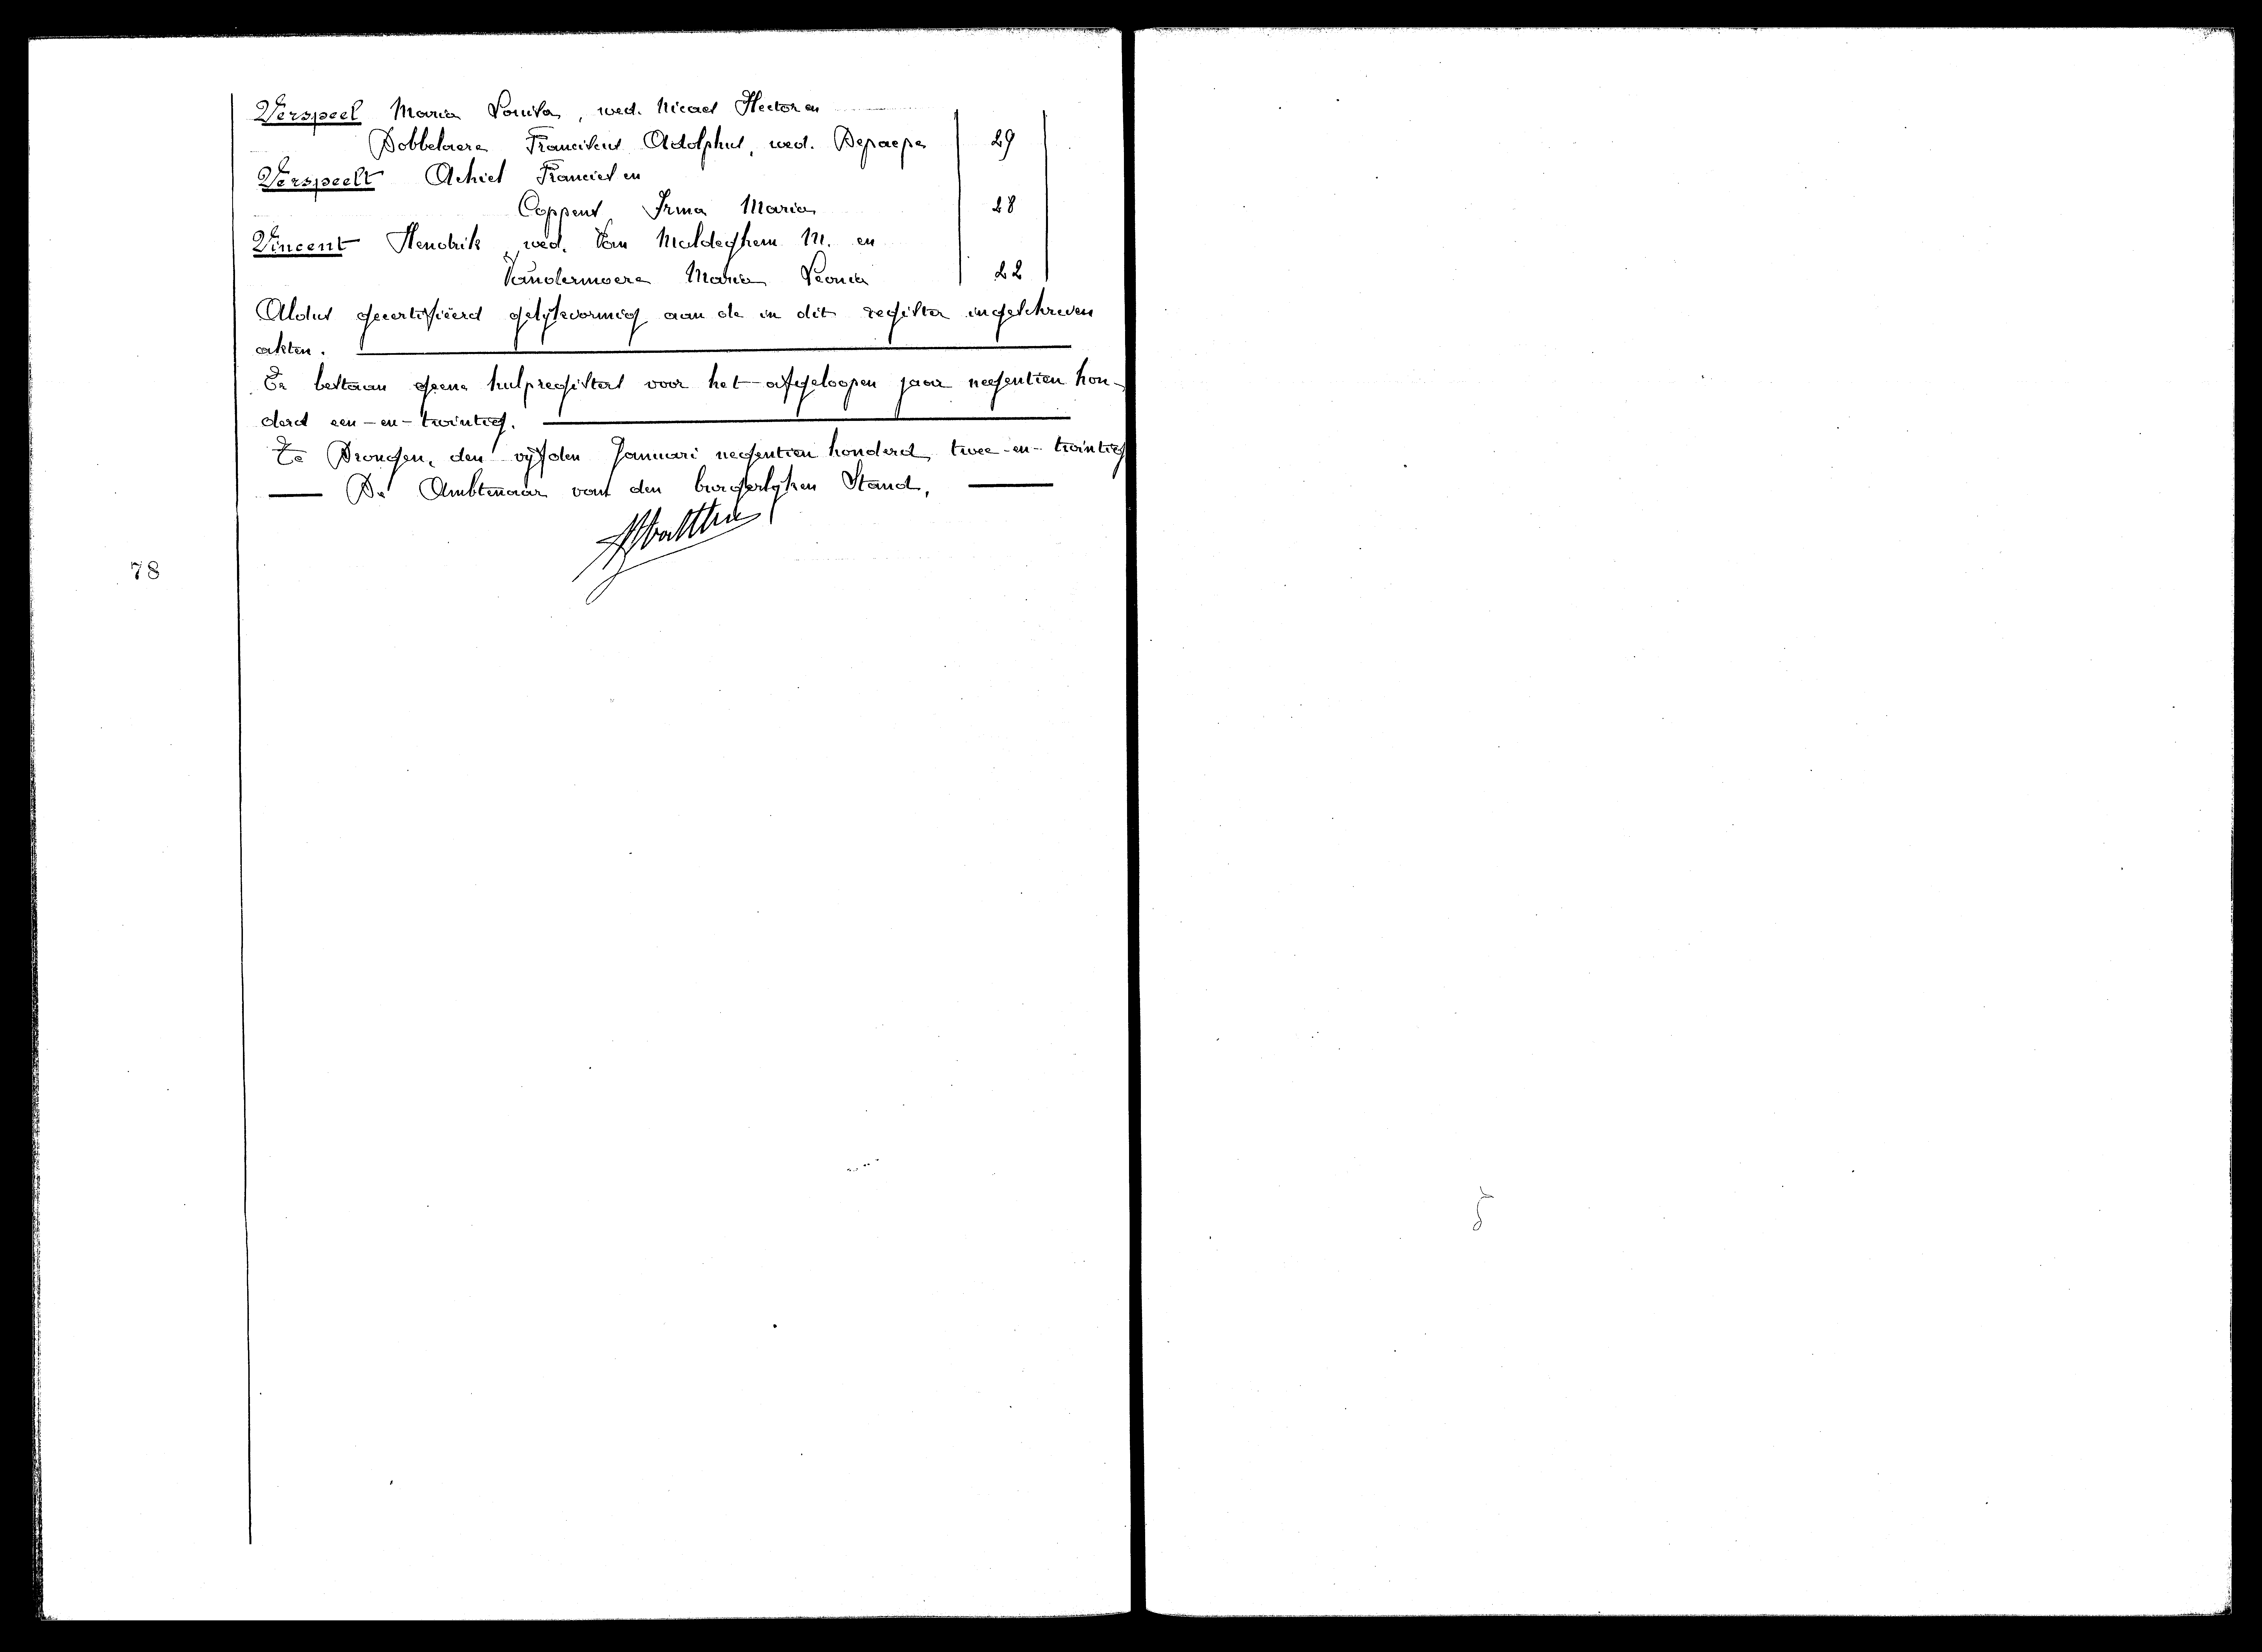 Verspeel Maria Louisa, wed. Nicaes Hector en
Dobbelaere Franciscus Adolphus, wed. Depaepe 29
Verspeelt Achiel Franciel en
Coppens Irma Maria 28
Vincent Hendrik wed. Van Maldeghem M. en
Vandermoere Maria Leonia 22
Aldus gecertifieerd gelijkvormig aan de in dit register ingeschreven
akten.
Er bestaan geene hulpregisters voor het afgeloopen jaar negentien hon-
derd een-en-twintig.
Te Drongen, den vijfden Januari negentien honderd twee-en-twintig
De Ambtenaar van den burgerlijken Stand,
78